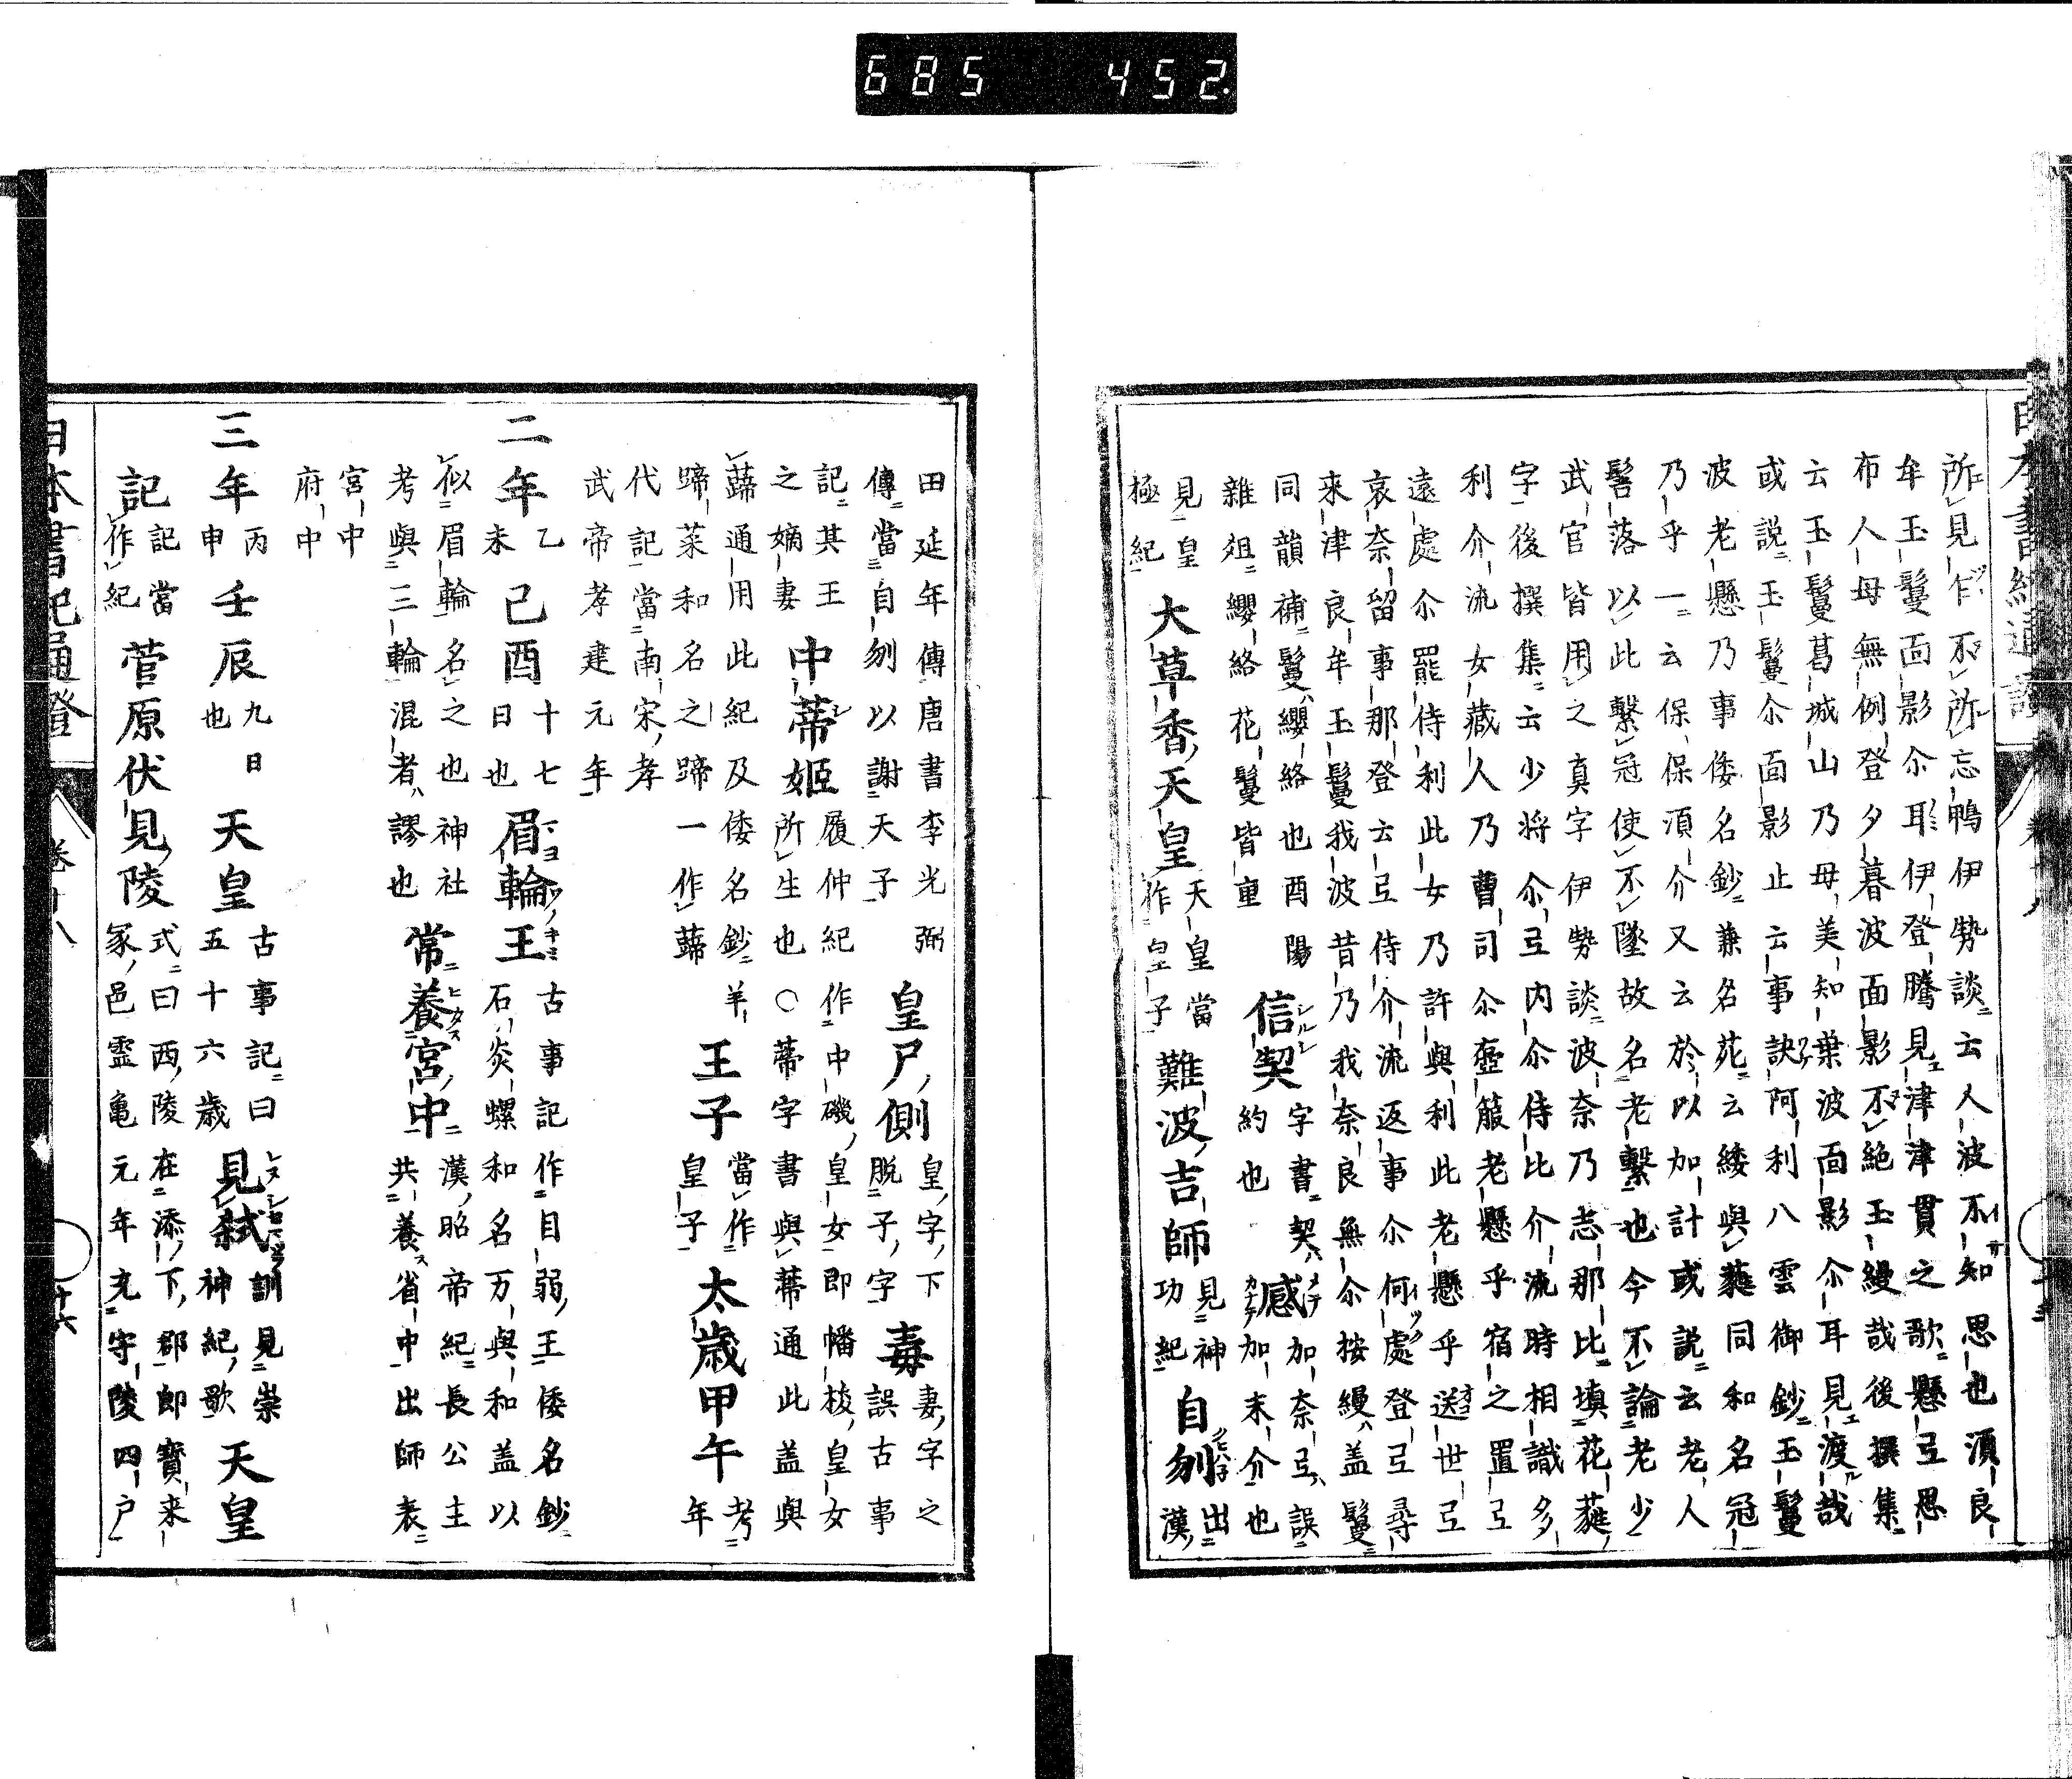 685 452
所見乍不所忘鴨伊勢談云人波不知思也湏良
牟玉鬘面影尒耳伊登騰見津津貫之歌懸弖思
布人母無例登夕暮波面影不絶玉縵哉後撰集
云玉鬘葛城山乃毋美知葉波面影尒耳見渡哉
或説玉鬘尒面影止云事訣阿利八雲御鈔玉鬘
波老懸乃事倭名鈔兼名苑云緌與蕤同和名冠
乃乎一云保保湏介又云於以加計或説云老人
髻落以此繫冠使不墜故名老繫也今不論老少
武官皆用之真字伊勢談波奈乃志那比填花蕤
字後撰集云少将尒弖内尒侍比介流時相識多
利介流女藏人乃曹司尒壺箙老懸乎宿之置弖
遠處尒罷侍利此女乃許與利此老懸乎送世弖
哀奈留事那登云弖侍介流返事尒何處登弖尋
来津良牟玉鬘我波昔乃我奈良無尒按縵蓋鬘
同韻補鬘纓絡也酉陽
雜俎纓絡花鬘皆重
信契
字書契
約也
感
加奈弖誤
加末介也
見皇
極紀
大草香天皇
天皇當
作皇子
難波吉師
見神
功紀
自刎
出
漢
田延年傳唐書李光弼
傳當自刎以謝天子
皇尸側
皇字下
脱子字
毒
妻字之
誤古事
記其王
之嫡妻
中蒂姬
履仲紀作中磯皇女即幡梭皇女
所生也○蒂字書與蔕通此蓋與
蘬通用此紀及倭名鈔羊
蹄菜和名之蹄一作蘬
王子
當作
皇子
太歳甲午
考
年
代記當南宋孝
武帝孝建元年
二年
乙
未
己酉
十七
日也
眉輪王
古事記作目弱王倭名鈔
石炎螺和名万與和盖以
似眉輪名之也神社
考與三輪混者謬也
常養宮中
漢昭帝紀長公主
共養省中出師表
宮中
府中
三年
丙
申
壬辰
九日
也
天皇
古事記曰
五十六歳
見弑
訓見崇
神紀歌
天皇
記
記當
作紀
菅原伏見陵
式曰西陵在添下郡郎寶来
冢邑霊亀元年充守陵四户
日本書紀通證